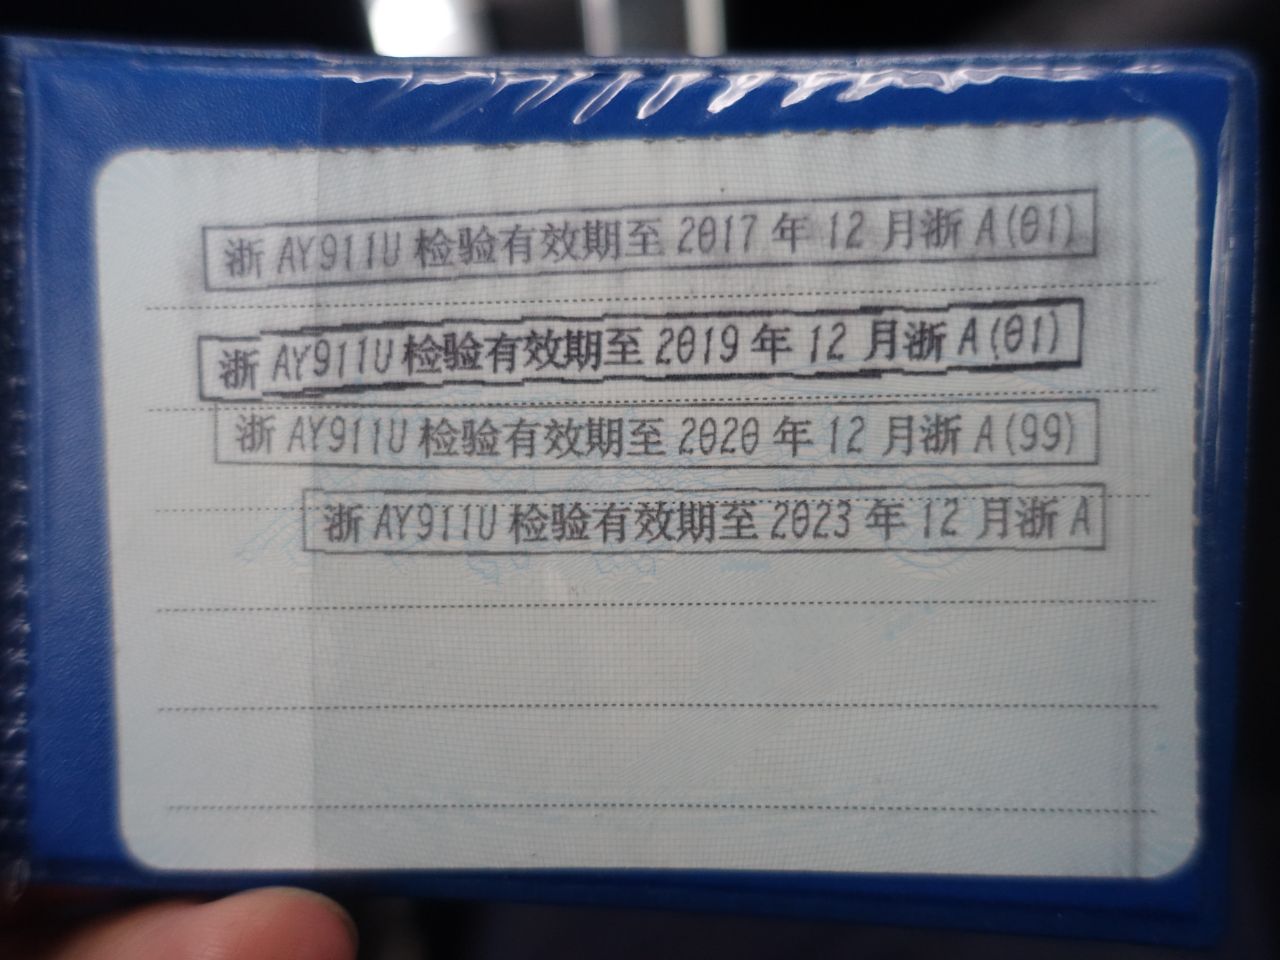 浙 AY911U 检验有效期至 2017 年 12 月浙 A(01)
浙 AY911U 检验有效期至 2019 年 12 月浙 A(01)
浙 AY911U 检验有效期至 2020 年 12 月浙 A(99)
浙 AY911U 检验有效期至 2023 年 12 月浙 A